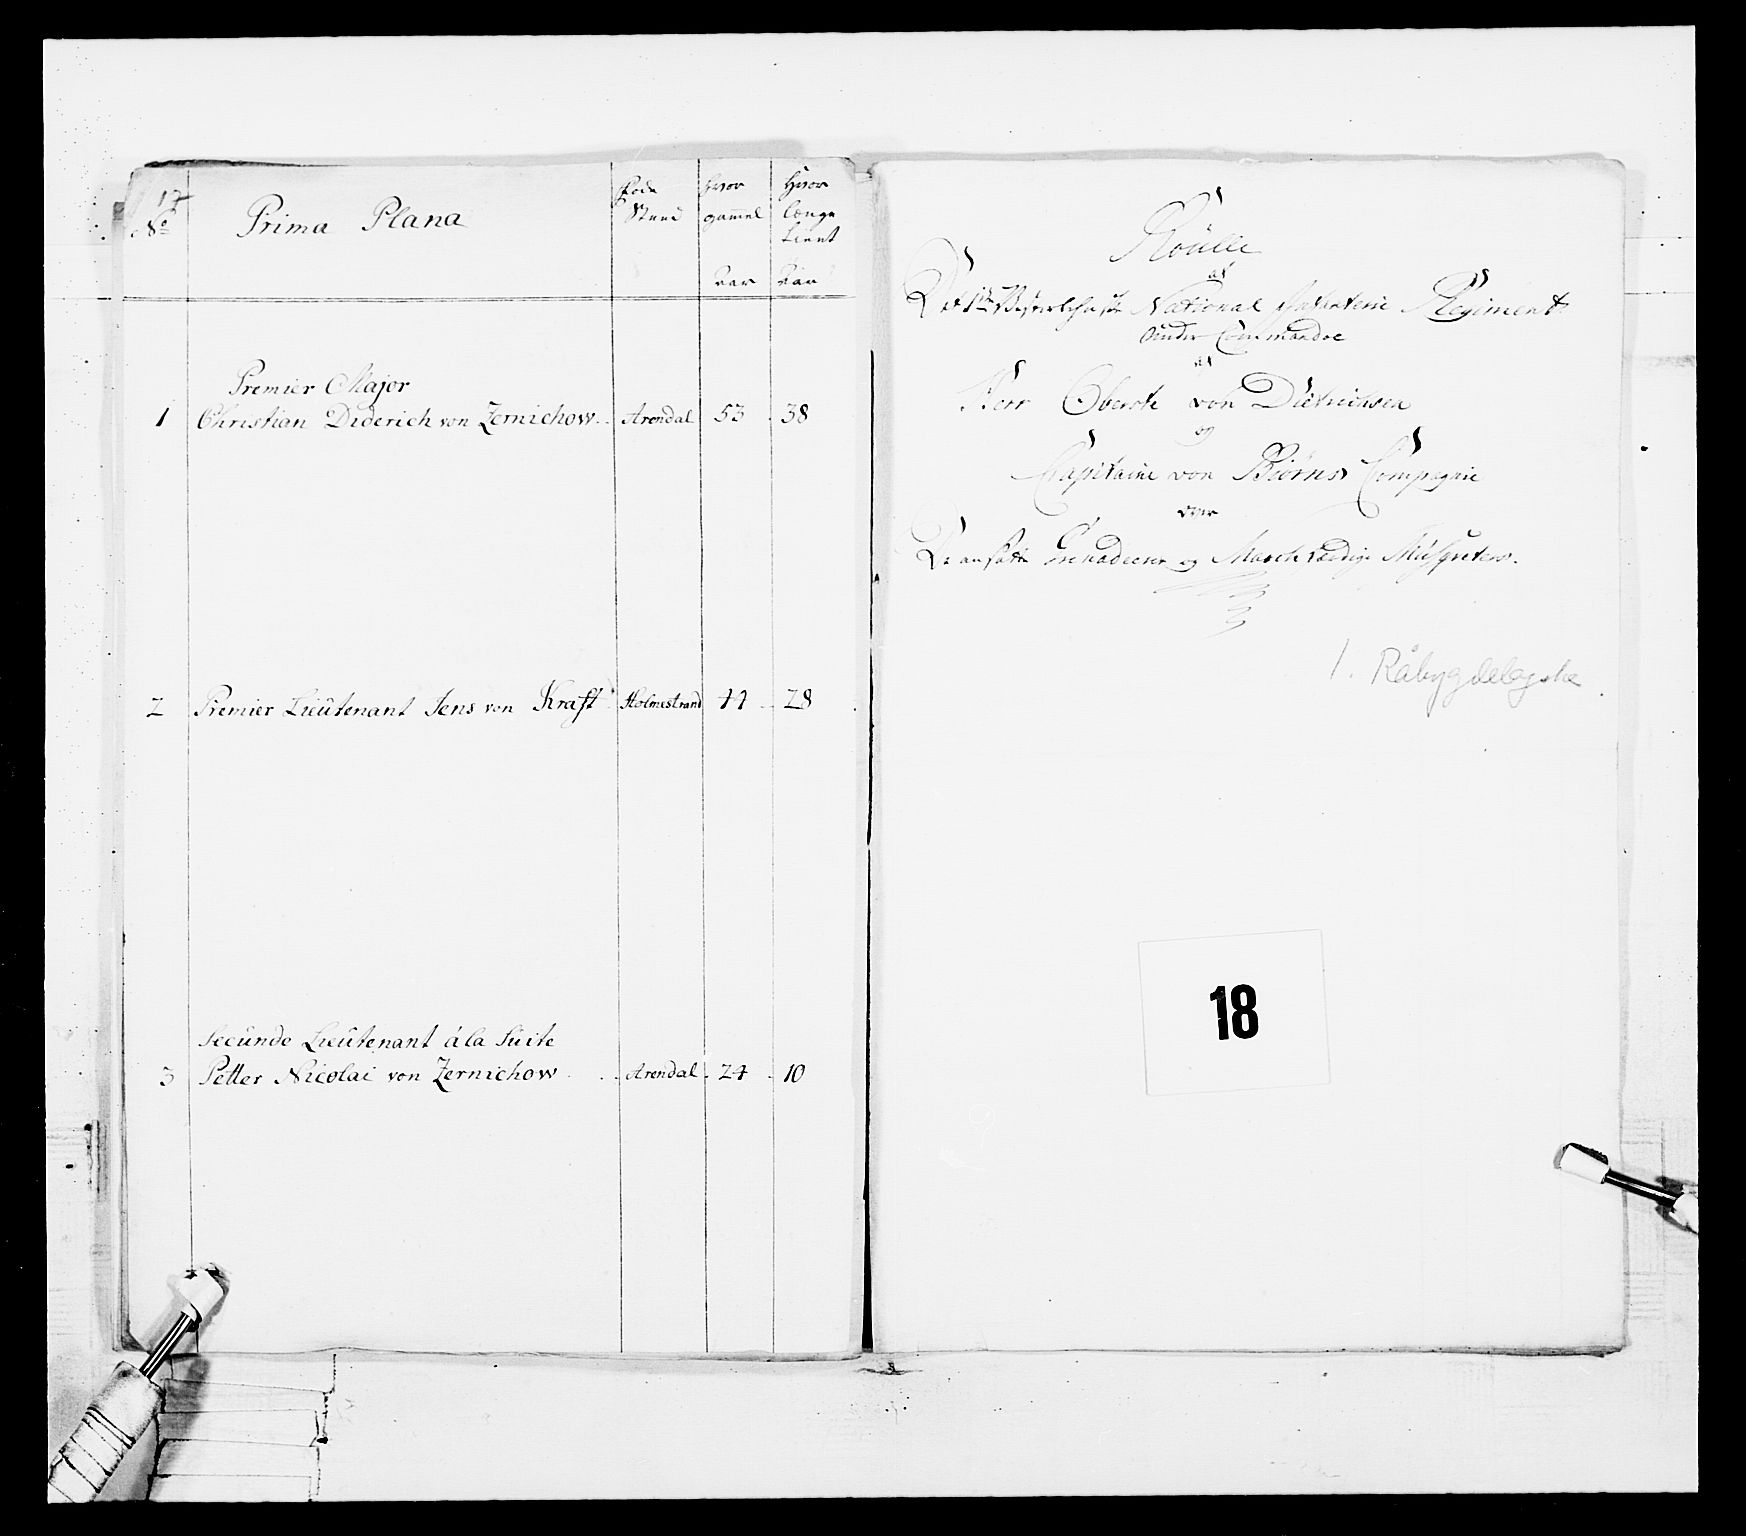 17
No
Prima Plana
Føde Steed
hvor gammel
Aar
Hvor længe tient
Aar
Premier Major
1 Christian Diderich von Zernichow Arendal 53 38
2 Premier Lieutenant Jens von Krafft Holmestrand 44 28
Secunde Lieutenant á la Suite
3 Petter Nicolai von Zernichow Arendal 24 10
Roulle
af
Det 1te Vesterlehnske National Infanterie Regiment
under Commandoe
af
Herr Oberste von Dietrichsen
og
Capitaine von Biørns Compagnie
over
De ansatte Grenadeerer og March færdige Musqueterer.
1. Råbygdelagske
18